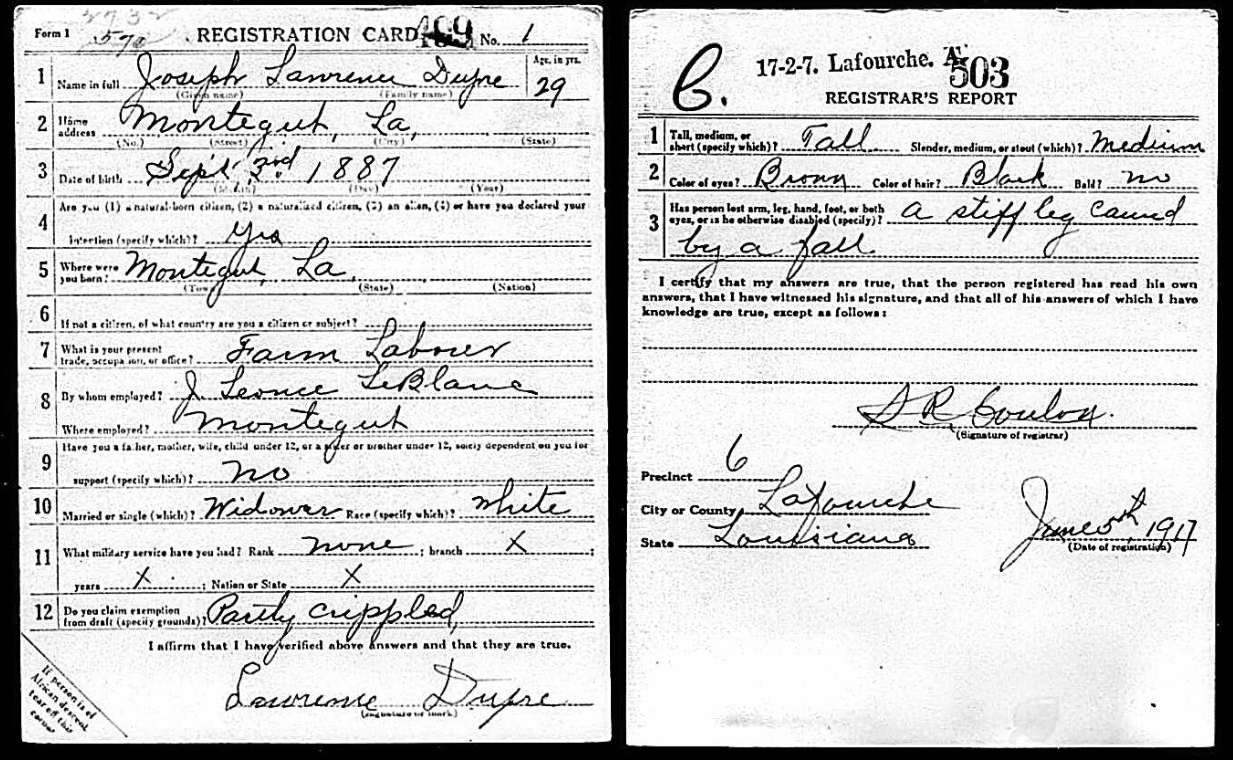 Form 1
2732
570
REGISTRATION CARD
No. 1
1 Name in full Joseph Lawrence Dupre
(Given name) (Family name)
Age, in yrs.
29
2 Home address Montegut, La,
(No.) (Street) (City) (State)
3 Date of birth Sept. 3rd 1887
(Month) (Day) (Year)
4 Are you (1) a natural-born citizen, (2) a naturalized citizen, (3) an alien, (4) or have you declared your
intention (specify which)? Yes
5 Where were you born? Montegut, La,
(Town) (State) (Nation)
6 If not a citizen, of what country are you a citizen or subject?
7 What is your present trade, occupation, or office? Farm Laborer
8 By whom employed? J. Leonce LeBlanc
Where employed? Montegut
9 Have you a father, mother, wife, child under 12, or a sister or brother under 12, solely dependent on you for
support (specify which)? No
10 Married or single (which)? Widower Race (specify which)? White
11 What military service have you had? Rank none ; branch X ;
years X ; Nation or State X
12 Do you claim exemption from draft (specify grounds)? Partly crippled,
I affirm that I have verified above answers and that they are true.
Lawrence Dupre
(Signature or mark)
If person is of
African descent,
tear off this
corner
C.
17-2-7. Lafourche. A
503
REGISTRAR'S REPORT
1 Tall, medium, or short (specify which)? Tall Slender, medium, or stout (which)? Medium
2 Color of eyes? Brown Color of hair? Black Bald? no
3 Has person lost arm, leg, hand, foot, or both eyes, or is he otherwise disabled (specify)? a stiff leg caused
by a fall.
I certify that my answers are true, that the person registered has read his own
answers, that I have witnessed his signature, and that all of his answers of which I have
knowledge are true, except as follows:
S R Coulon.
(Signature of registrar)
Precinct 6
City or County Lafourche
State Louisiana
June 5th, 1917
(Date of registration)